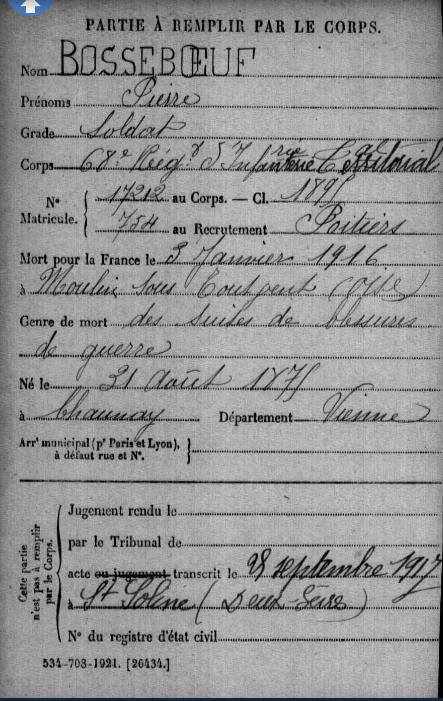 PARTIE À REMPLIR PAR LE CORPS.
Nom BOSSEBŒUF
Prénoms Pierre
Grade Soldat
Corps 68e Régt d'Infanterie Territorial
N° Matricule. 17212 au Corps. — Cl. 1895
754 au Recrutement Poitiers
Mort pour la France le 3 Janvier 1916
à Moulin sous Toutvent (Oise)
Genre de mort des suites de blessures
de guerre
Né le 21 Août 1875
à Chaunay Département Vienne
Arrt municipal (pr Paris et Lyon),
à défaut rue et N°.
Cette partie n'est pas à remplir par le Corps.
Jugement rendu le
par le Tribunal de
acte ou jugement transcrit le 28 septembre 1917
à St Soline (Deux-Sèvres)
N° du registre d'état civil
534-708-1921. [26434.]